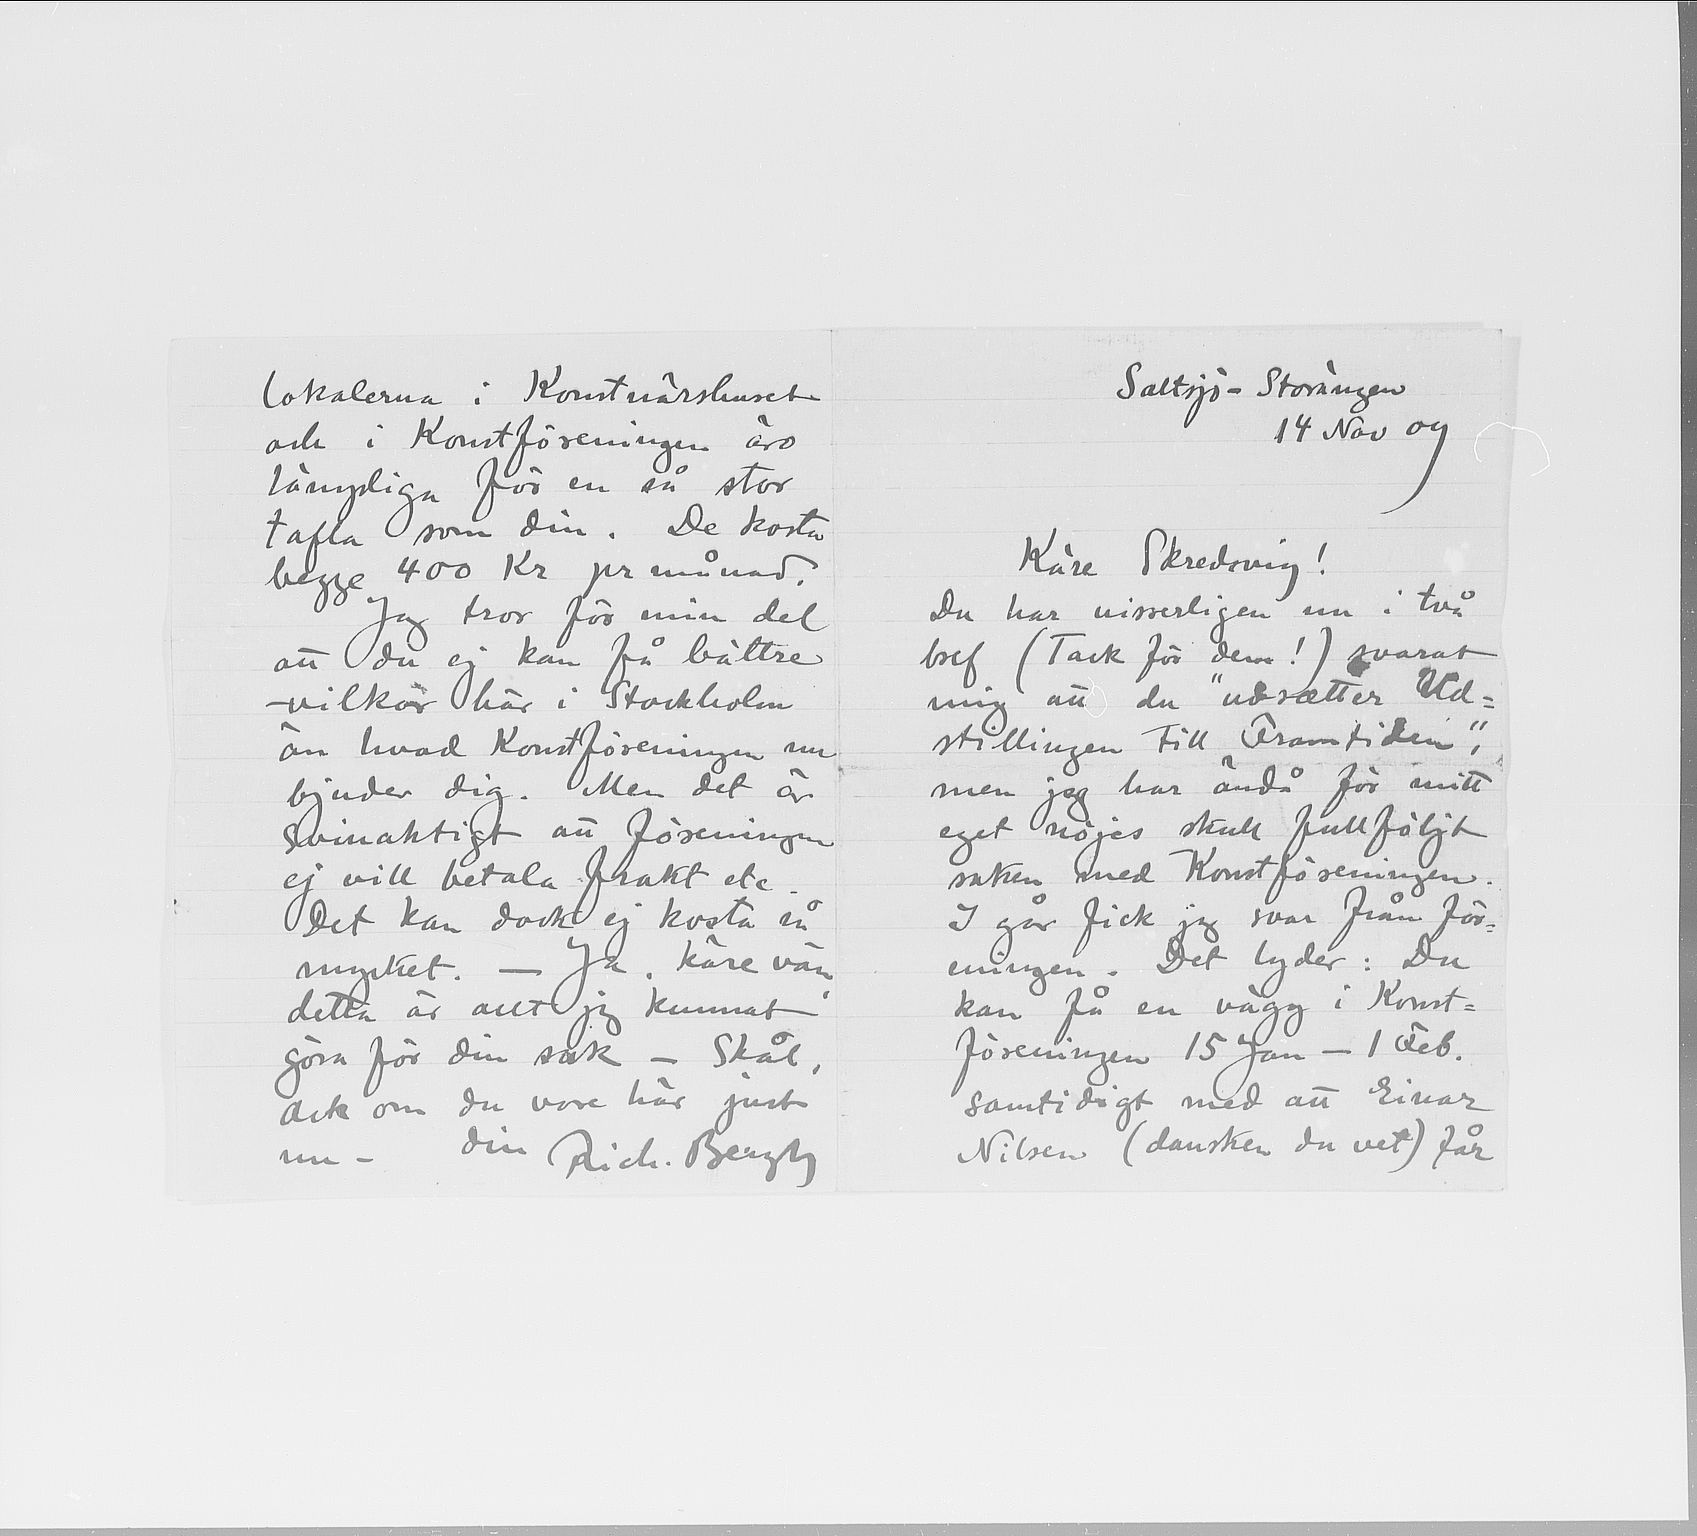 Saltsjö-Storängen
14 Nov 09
Käre Skredsvig!
Du har visserligen nu i två
bref (Tack för dem!) svarat
mig att du "udsætter Ud=
stillingen till Framtiden",
men jag har ändå för mitt
eget nöjes skull fullföljt
saken med Konstföreningen.
I går fick jag svar från för=
eningen. Det lyder: Du
kan få en vägg i Konst=
föreningen 15 Jan – 1 Feb.
samtidigt med att Einar
Nilsen (dansken du vet) får
lokalerna i Konstnärshuset
och i Konstföreningen äro
lämpliga för en så stor
tafla som din. De kosta
begge 400 Kr pr månad.
Jag tror för min del
att du ej kan få bättre
vilkor här i Stockholm
än hvad Konstföreningen nu
bjuder dig. Men det är
svinaktigt att föreningen
ej vill betala frakt etc.
Det kan dock ej kosta så
mycket. — Ja, käre vän,
detta är allt jag kunnat
göra för din sak – Skål,
ack om du vore här just
nu – din Rich. Bergh